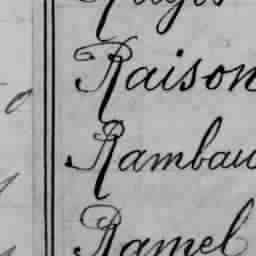 Raison
Rambau
Ramel